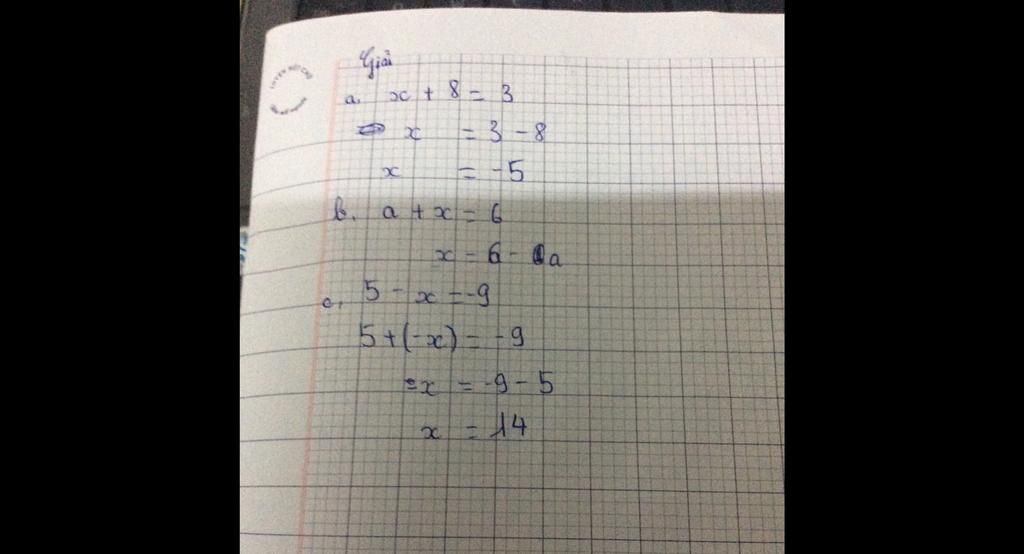 Giải
a. x + 8 = 3
x = 3 - 8
x = -5
b. a + x = 6
x = 6 - a
c. 5 - x = -9
5 + (-x) = -9
-x = -9 - 5
x = 14